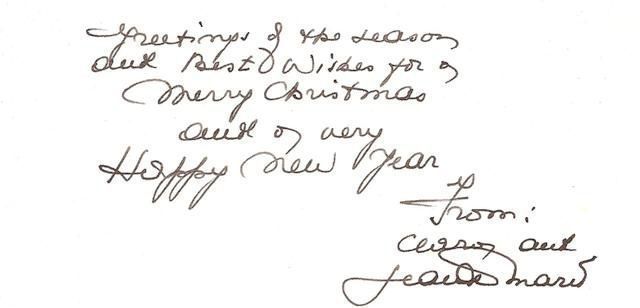 Greetings of the season
and Best Wishes for a
Merry Christmas
and a very
Happy New Year
From:
and